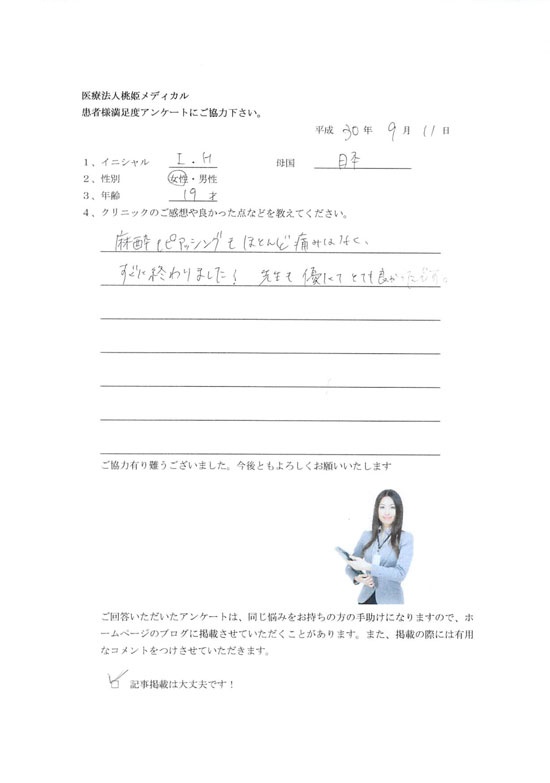 医療法人桃姫メディカル
患者様満足度アンケートにご協力下さい。
平成 30 年 9 月 11 日
1、イニシャル I・H 母国 日本
2、性別 女性・男性
3、年齢 19 才
4、クリニックのご感想や良かった点などを教えてください。
麻酔もピアッシングもほとんど痛みはなく、
すぐに終わりました! 先生も優しくてとても良かったです。
ご協力有り難うございました。今後ともよろしくお願いいたします
ご回答いただいたアンケートは、同じ悩みをお持ちの方の手助けになりますので、ホ
ームページのブログに掲載させていただくことがあります。また、掲載の際には有用
なコメントをつけさせていただきます。
記事掲載は大丈夫です!